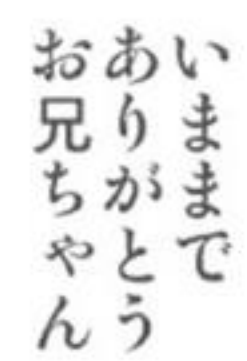 いままで
ありがとう
お兄ちゃん